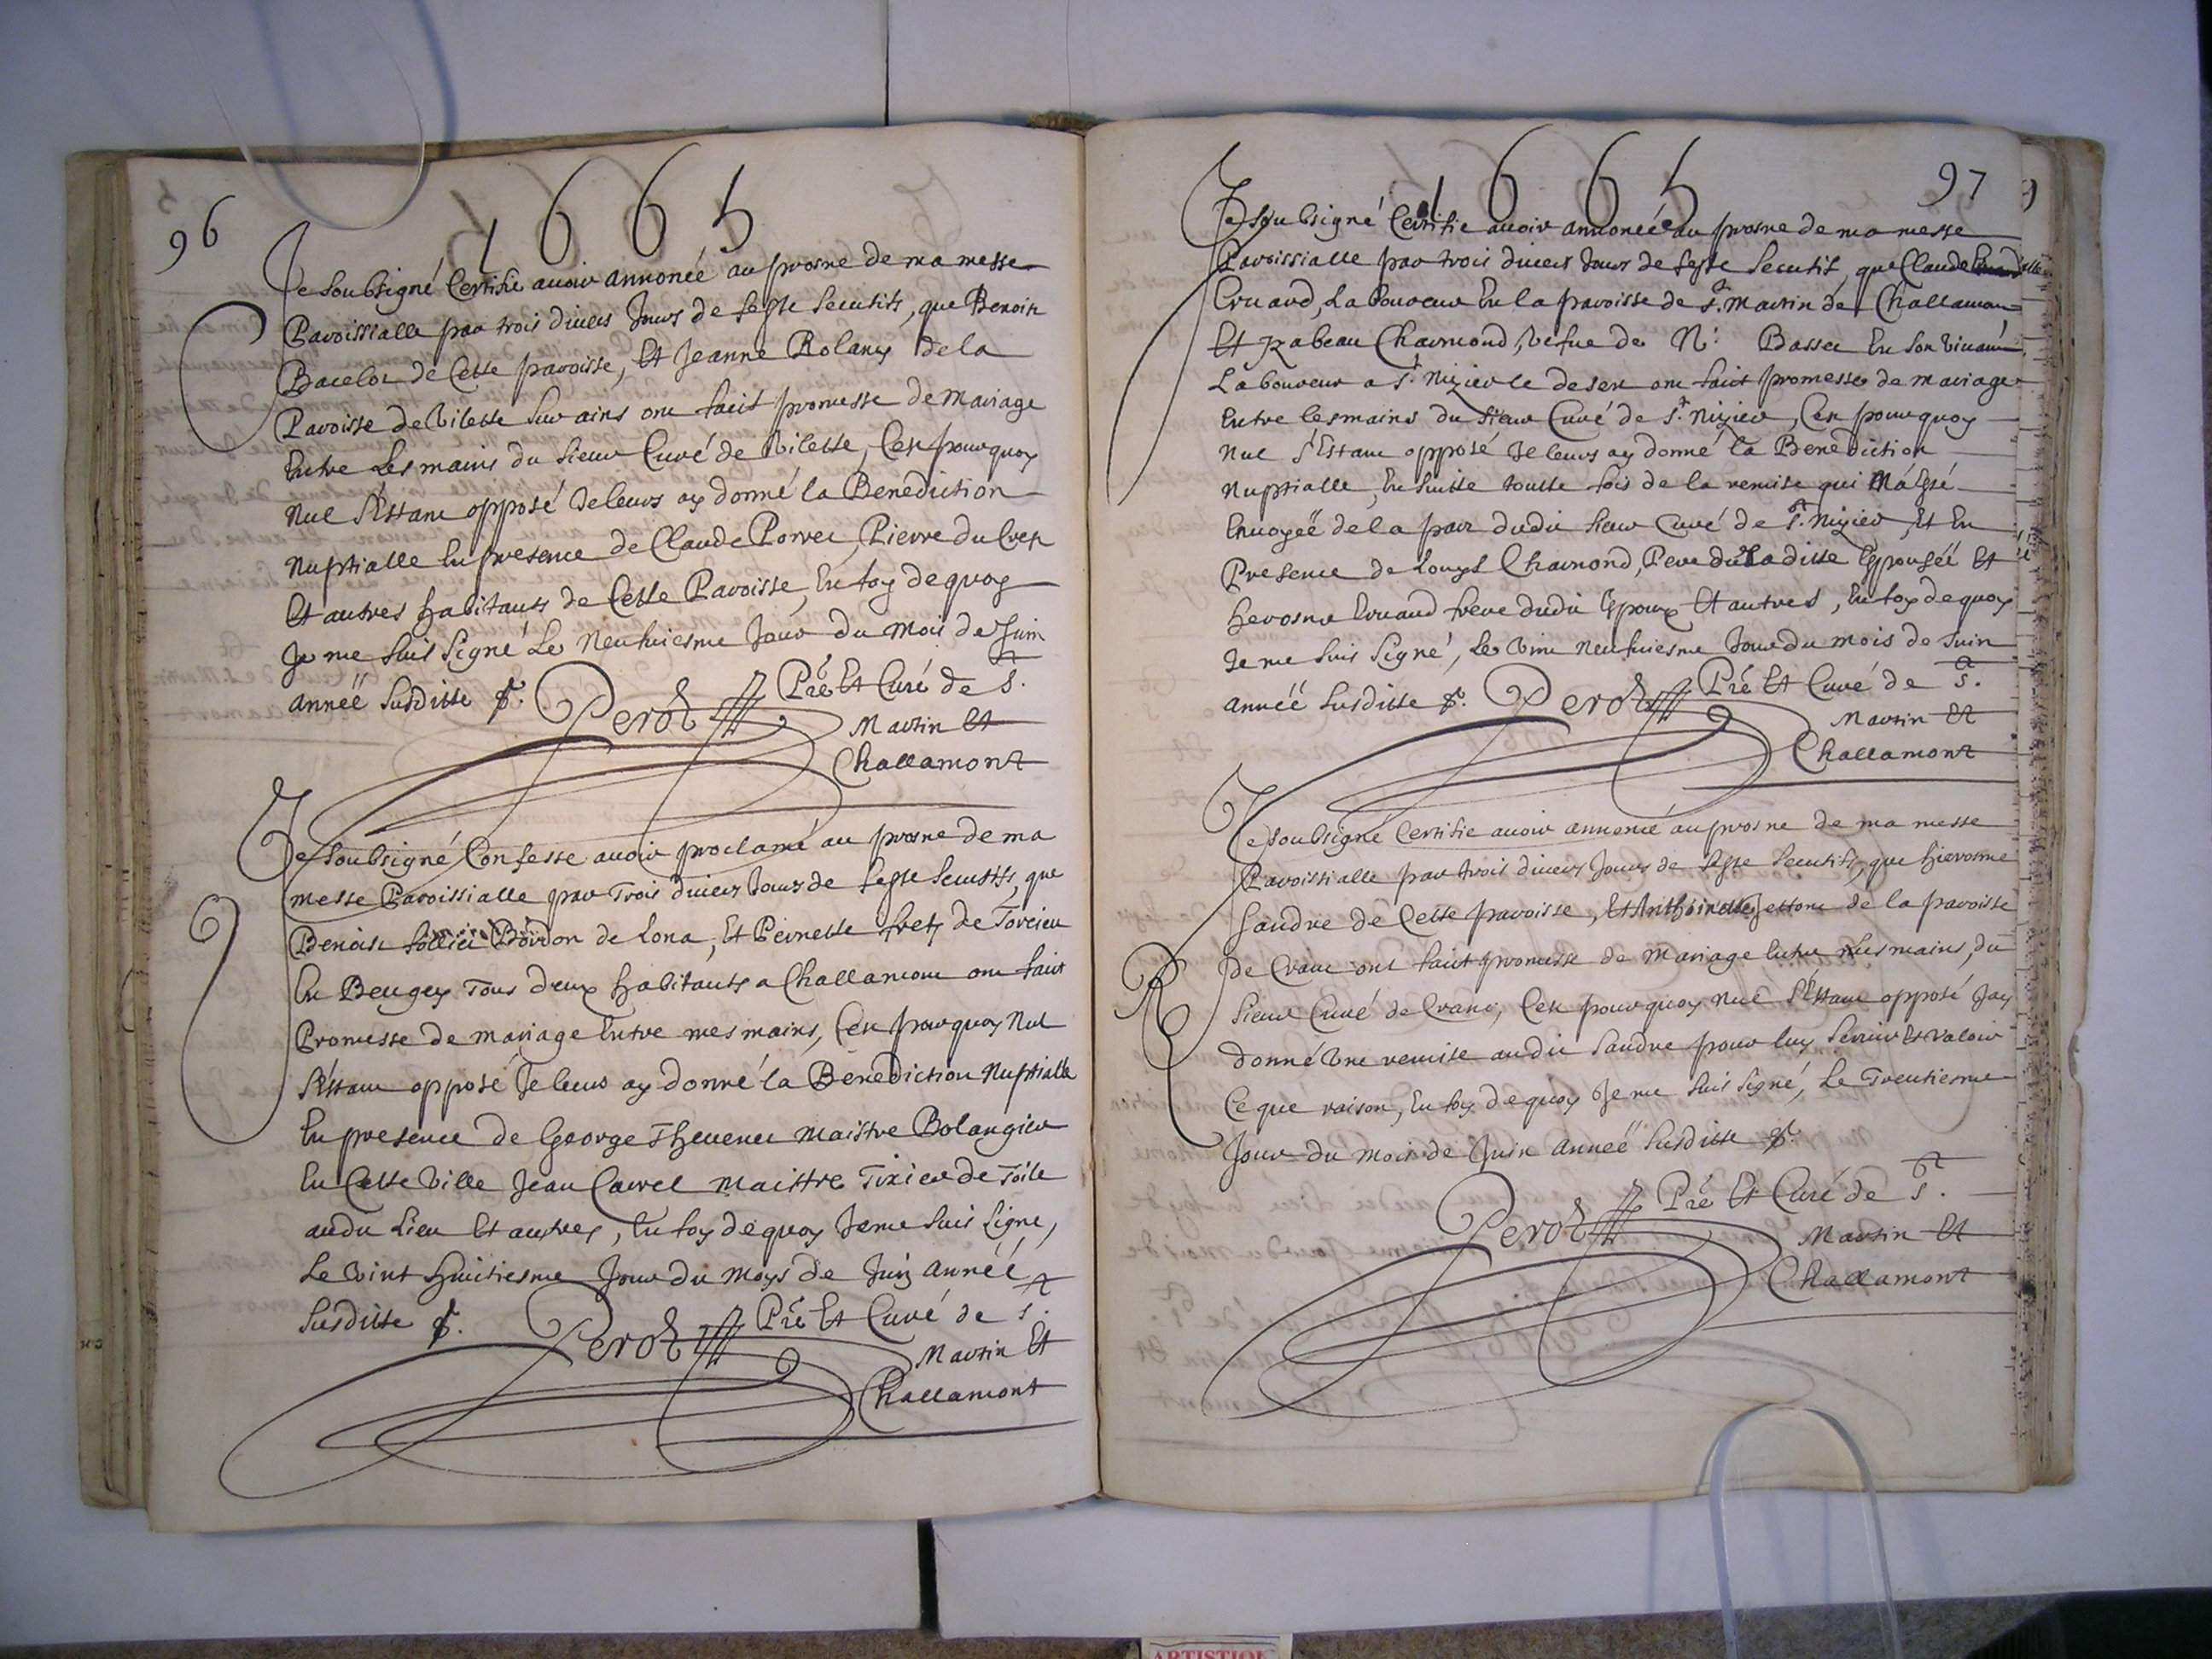 96
1665
Je soubsigné Certifie auoir annoncé au prosne de ma messe
Paroissialle par trois diuers Jours de feste secutifs, que Benoit
Bacelot de Cette paroisse, Et Jeanne Roland de la
Paroisse de Vilette sur ains ont faict promesse de Mariage
Entre Les mains du sieur Curé de Vilette, Cest pourquoy
Nul s'Estant opposé Je leurs ay donné la Benediction
Nuptialle En presence de Claude Porret, Pierre du Crest
Et autres habitants de Cette Paroisse, En foy de quoy
Je me suis signé Le Neufuiesme Jour du Mois de Juin
Année susditte
Perot Pre Et Curé de St.
Martin Et
Challamont
Je soubsigné Confesse auoir proclamé au prosne de ma
messe Paroissialle par Trois diuers Jours de feste secutifs, que
Benoist Boiron de Lona, Et Peirnette frety de Torcieu
En Beugey Tous deux habitants a Challamont ont faict
Promesse de mariage Entre mes mains, Cest pourquoy Nul
s'Estant opposé Je leurs ay donné la Benediction Nuptialle
En presence de George Theuenet Maistre Bolangier
En Cette Ville Jean Carrel Maistre Tixier de Toile
audit Lieu Et autres, En foy de quoy Je me suis signe,
Le Vint huictiesme Jour du Moys de Juin Année
susditte
Perot Pre Et Curé de St.
Martin Et
Challamont
1665
97
Je soubsigné Certifie auoir annoncée au prosne de ma messe
Paroissialle par trois diuers Jours de feste secutif, que Claude
Eruard, Laboureur En la paroisse de St. Martin de Challamont
Et Izabeau Charmond, Vefue de N: Basset En son Viuant
Laboureur a St. Nizier le desert ont faict promesse de mariage
Entre les mains du sieur Curé de St. Nizier, Cest pourquoy
Nul s'Estant opposé Je leurs ay donné la Benediction
Nuptialle, En suitte toutte fois de la remise qui M'a Esté
Enuoyeé de la part dudit sieur Curé de St. Nizier, Et En
Presence de Louys Charmond, Pere du La ditte Espouséé Et
herosme Eruard frere dudit Espoux Et autres, En foy de quoy
Je me suis signé, Le Vint Neufuiesme Jour du mois de Juin
Année susditte
Perot Pré Et Curé de St.
Martin Et
Challamont
Je soubsigné Certifie auoir annoncé au prosne de ma messe
Paroissialle par trois diuers Jours de feste secutifs, que hierosme
Sandre de Cette paroisse, Et Anthoinette Jettont de la paroisse
R
de Crant ont faict promesse de Mariage Entre Les mains, du
sieur Curé de Crans, Cest pourquoy Nul s'Estant opposé Jay
donné Une remise audit Sandre pour luy seruir Et Valoir
Ce que raison, En foy de quoy Je me suis signé, Le Trentiesme
Jour du Mois de Juin Année susditte
Perot Pré Et Curé de St.
Martin Et
Challamont